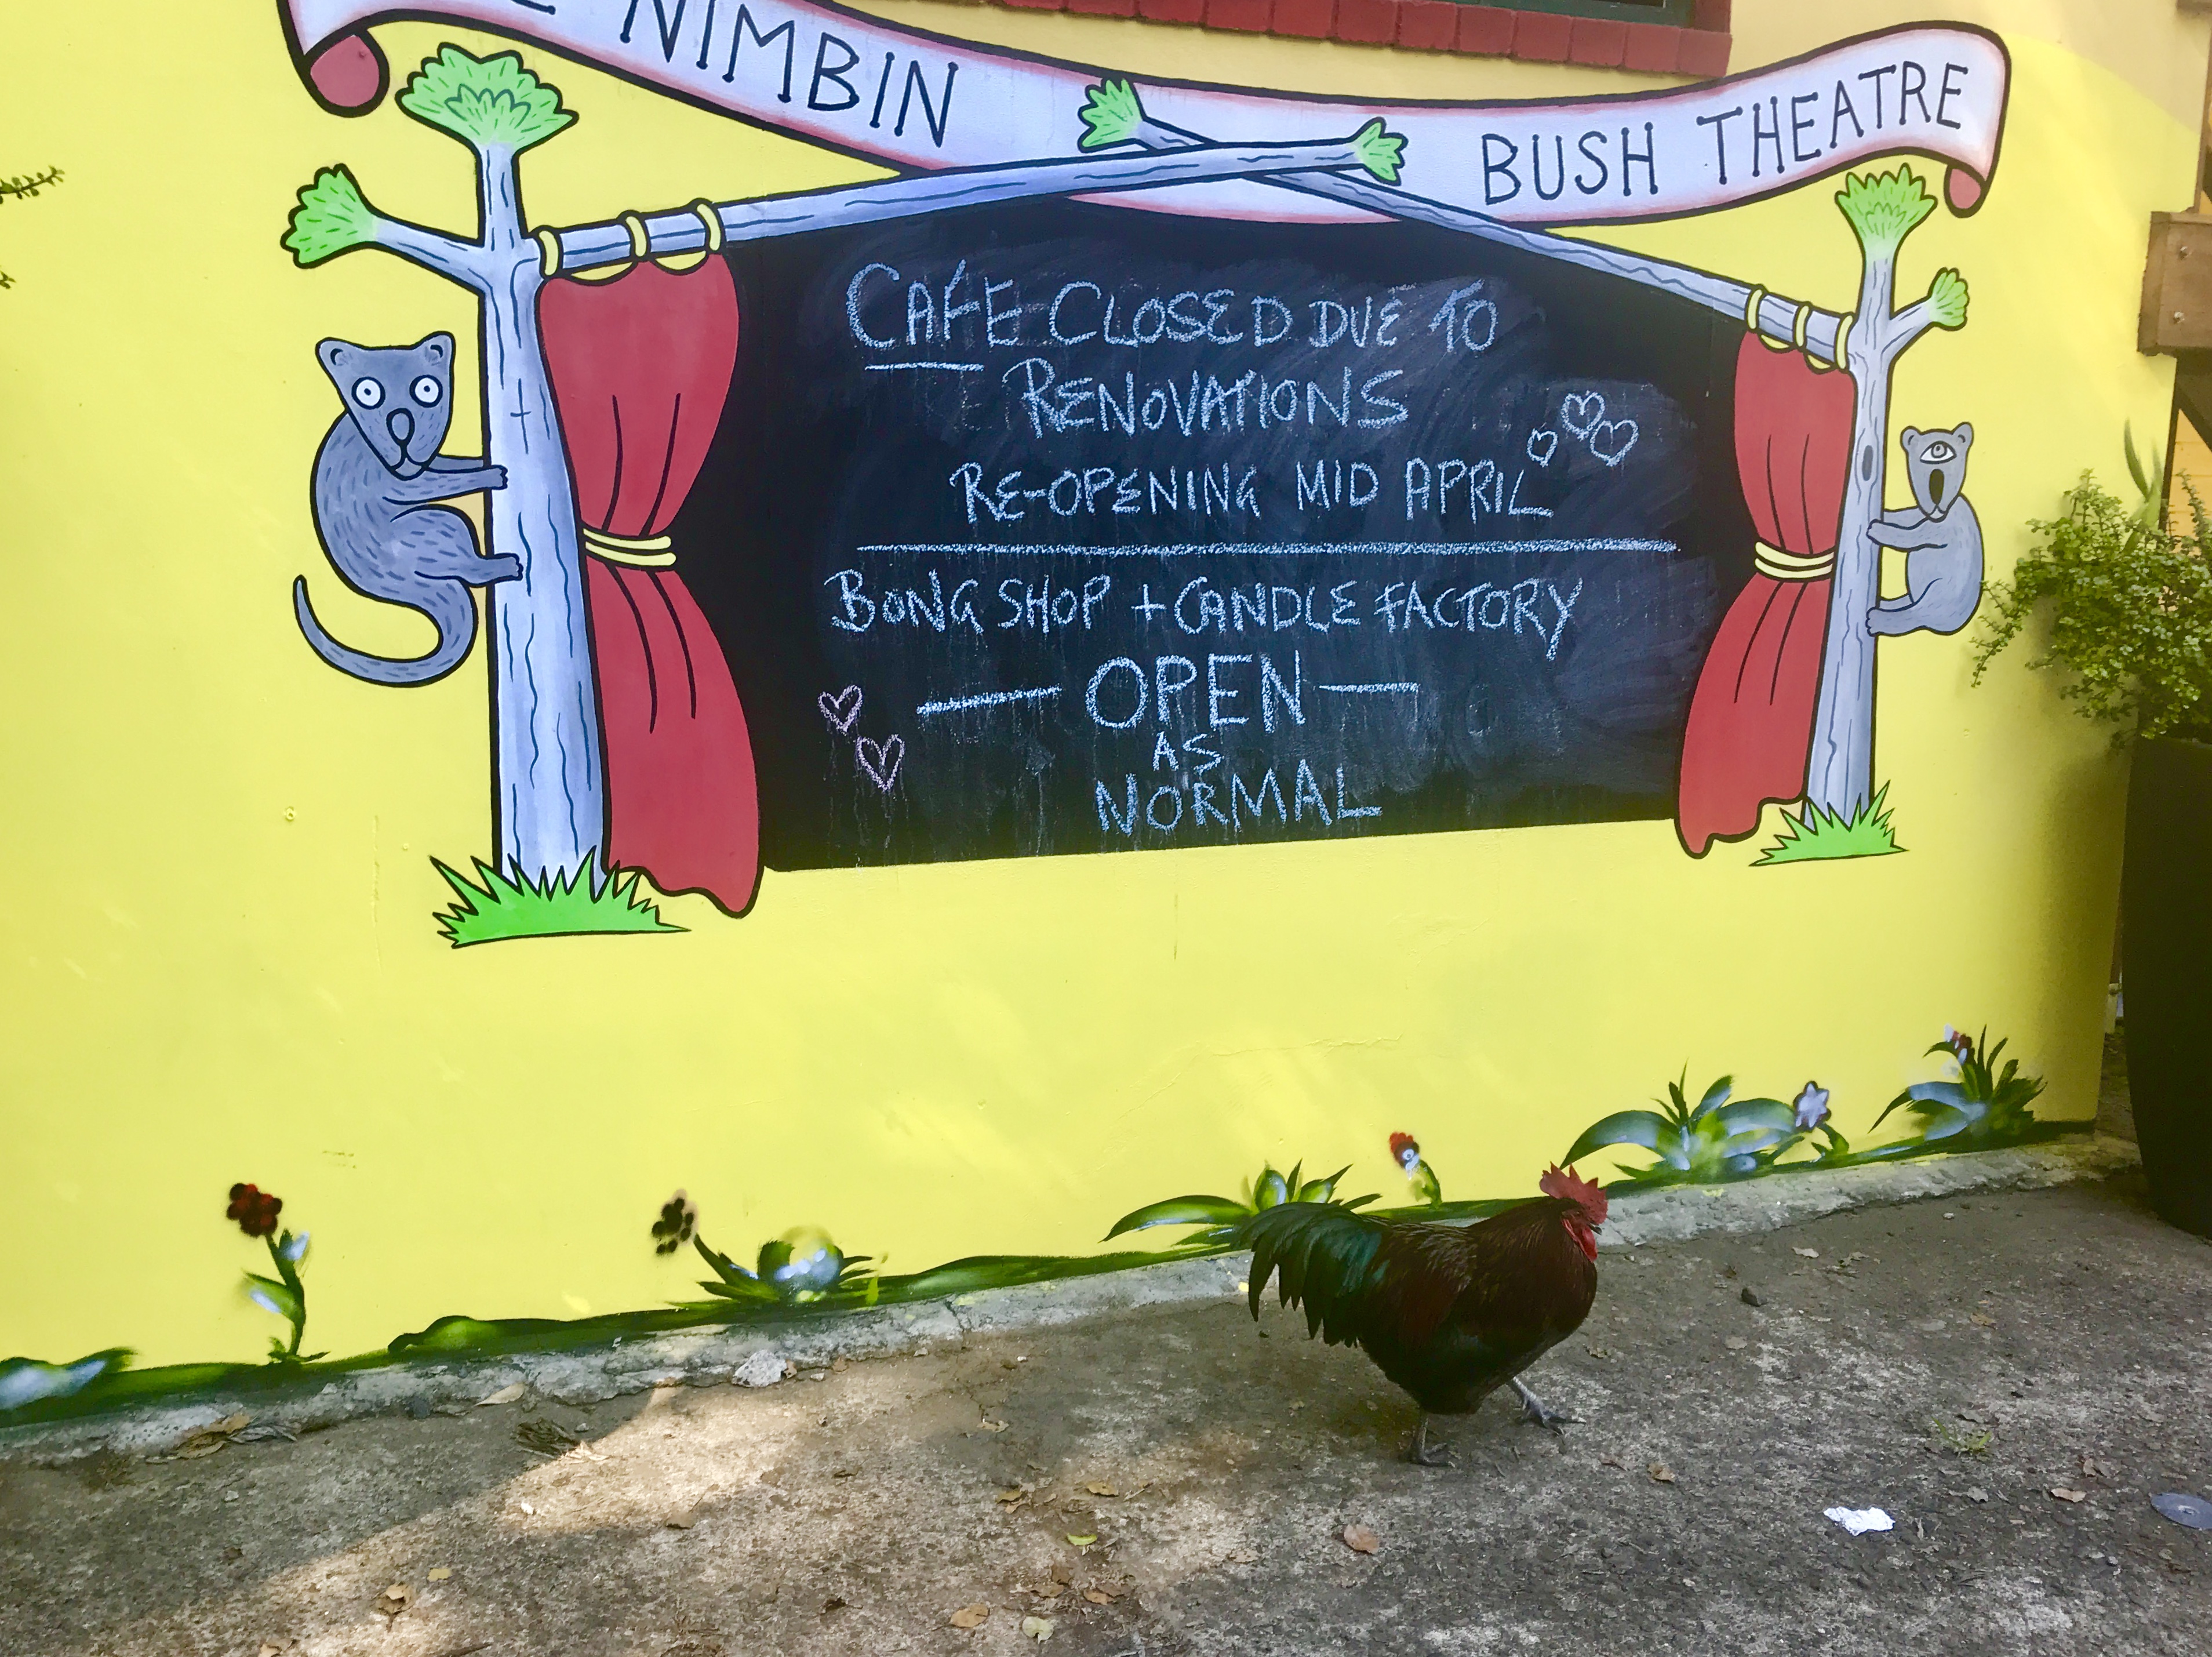 E NIMBIN BUSH THEATRE
CAFE CLOSED DUE TO
RENOVATIONS
RE-OPENING MID APRIL
BONG SHOP + CANDLE FACTORY
— OPEN —
AS
NORMAL